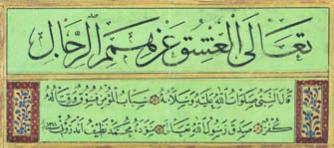 تعالى العشق عن همم الرجال
قال النبي صلوات الله عليه وسلامه سباب المؤمن فسوق وقتاله
كفر صدق رسول الله سوده محمد نظيف